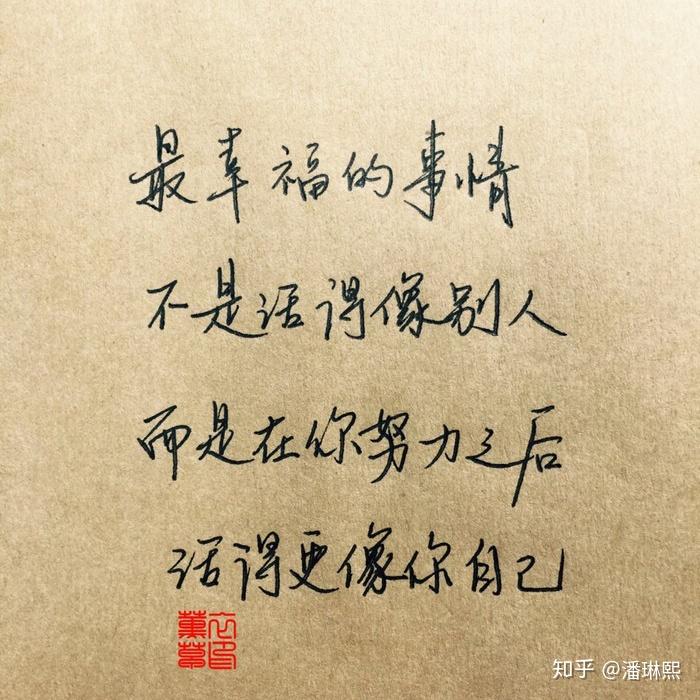 最幸福的事情
不是活得像别人
而是在你努力之后
活得更像你自己
知乎 @潘琳熙